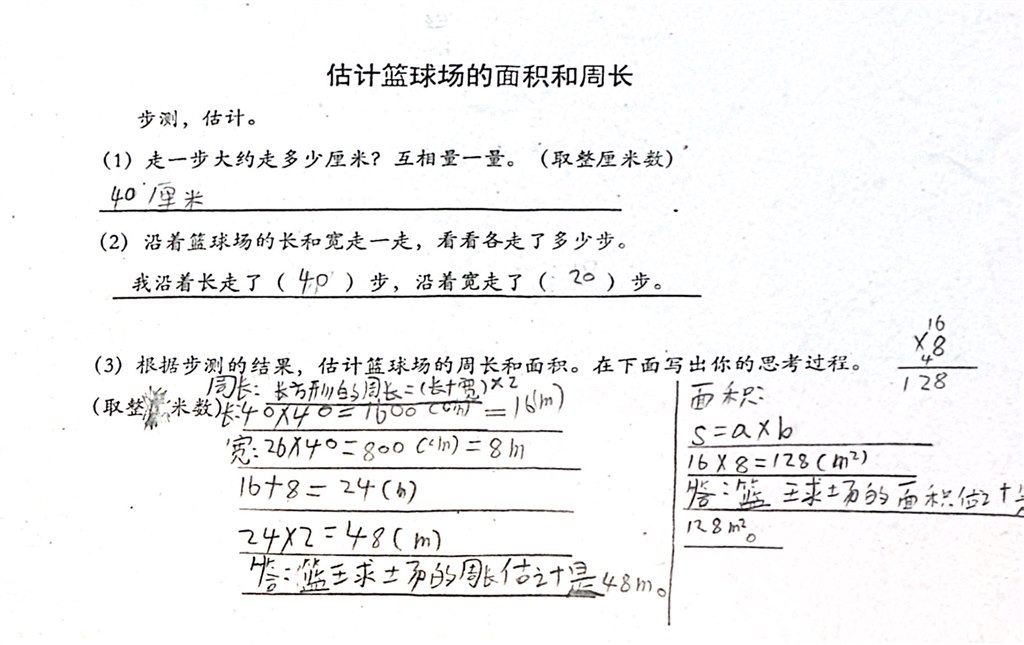 估计篮球场的面积和周长
步测，估计。
（1）走一步大约走多少厘米？互相量一量。（取整厘米数）
40厘米
（2）沿着篮球场的长和宽走一走，看看各走了多少步。
我沿着长走了（ 40 ）步，沿着宽走了（ 20 ）步。
（3）根据步测的结果，估计篮球场的周长和面积。在下面写出你的思考过程。
（取整 米数）
周长：长方形的周长=(长+宽)×2
长:40×40=1600(cm)=16(m)
宽:20×40=800(cm)=8m
16+8=24(m)
24×2=48(m)
答：篮球场的周长估计是48m。
面积：
S=a×b
16×8=128(m²)
答：篮球场的面积估计是
128m²。
16
×8
4
128